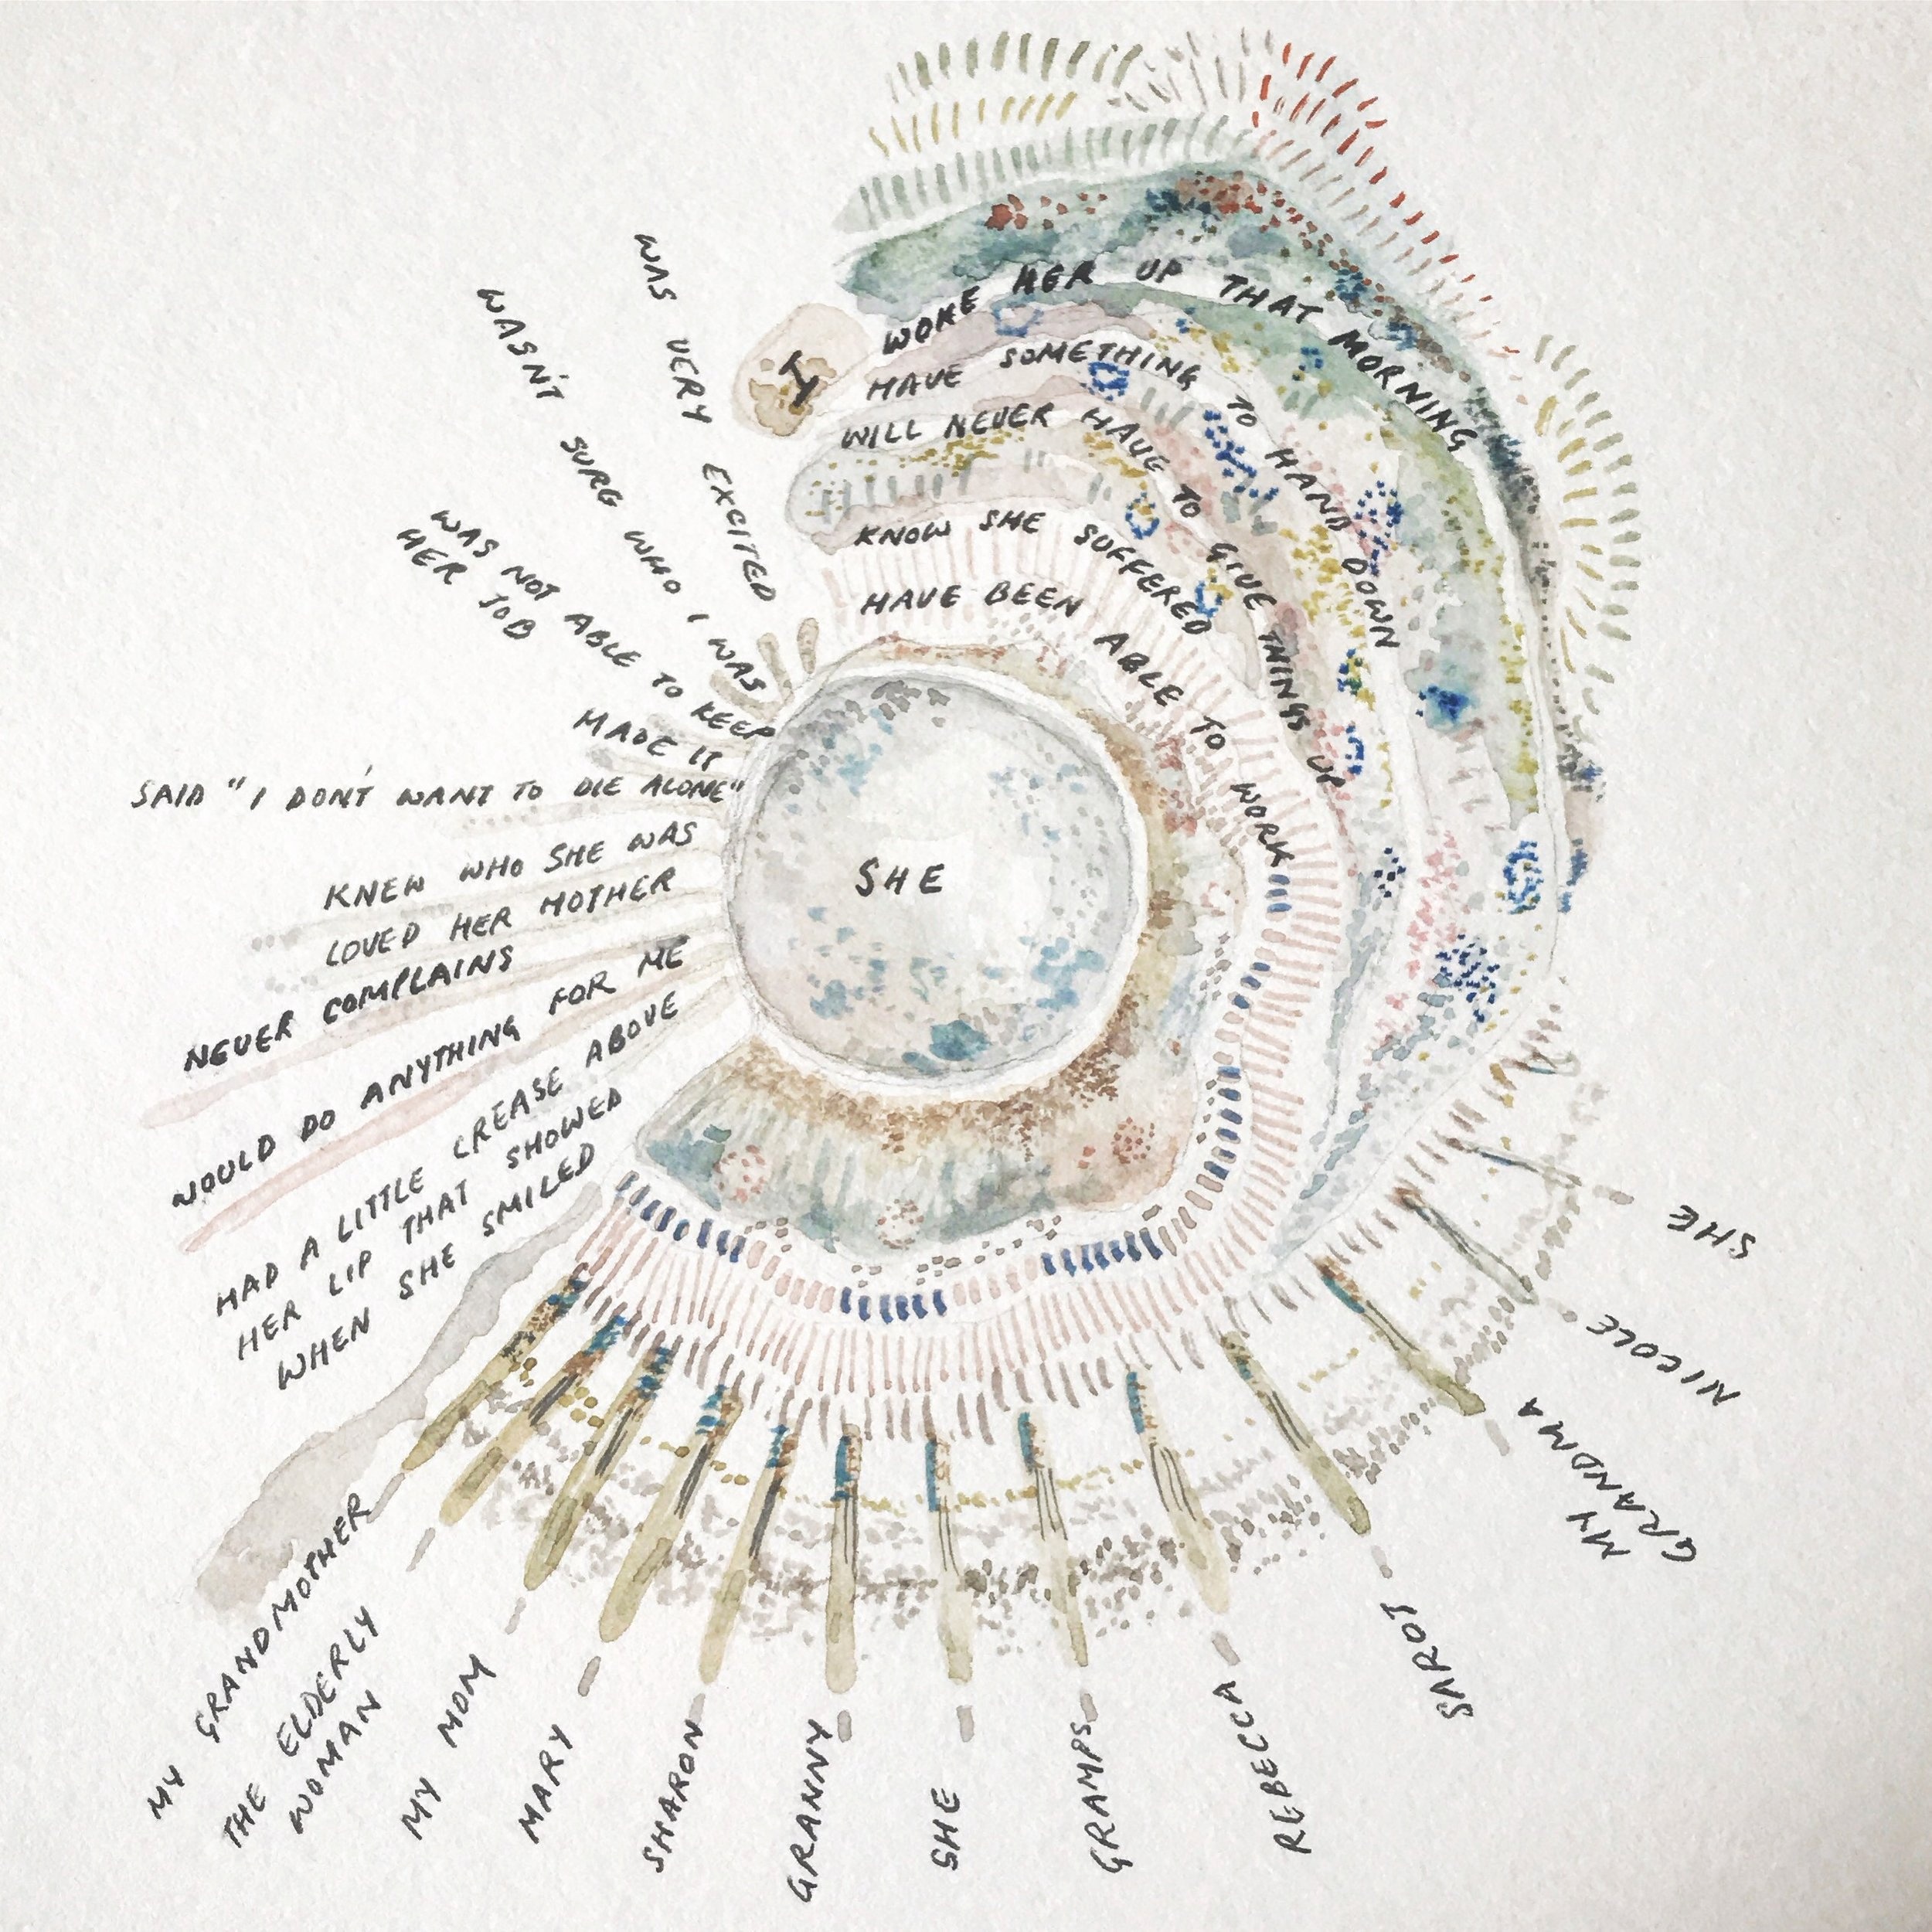 I
WOKE HER UP THAT MORNING
HAVE SOMETHING TO HAND DOWN
WILL NEVER HAVE TO GIVE THINGS UP
KNOW SHE SUFFERED
HAVE BEEN ABLE TO WORK
SHE
WAS VERY EXCITED
WASN'T SURE WHO I WAS
WAS NOT ABLE TO KEEP
HER JOB
MADE IT
SAID "I DON'T WANT TO DIE ALONE"
KNEW WHO SHE WAS
LOVED HER MOTHER
NEVER COMPLAINS
WOULD DO ANYTHING FOR ME
HAD A LITTLE CREASE ABOVE
HER LIP THAT SHOWED
WHEN SHE SMILED
MY GRANDMOTHER
THE ELDERLY
WOMAN
MY MOM
MARY
SHARON
GRANNY
SHE
GRAMPS
REBECCA
SAROJ
MY
GRANDMA
NICOLE
SHE